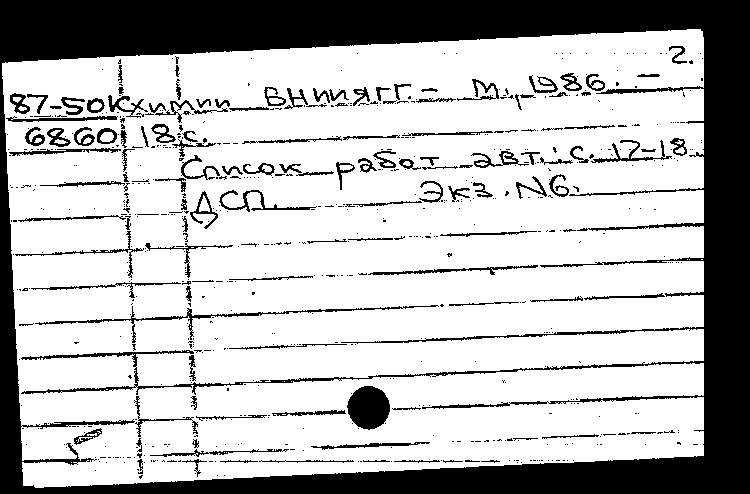 2.
87-50К химии ВНИИЯГГ. - М., 1986. -
6860 18 с.
Список работ авт.: с. 17-18.
ДСП. Экз. N6.